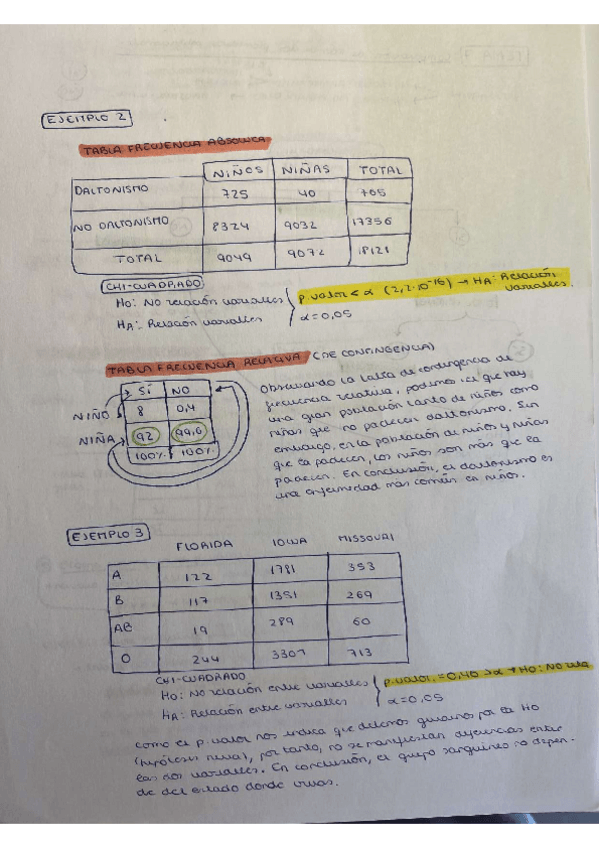 EJEMPLO 2
TABLA FRECUENCIA ABSOLUTA
NIÑOS NIÑAS TOTAL
DALTONISMO 725 40 765
NO DALTONISMO 8324 9032 17356
TOTAL 9049 9072 18121
CHI-CUADRADO
H0: No relación variables
HA: Relación variables
p.valor < α (2,2·10⁻¹⁶) → HA: Relación variables.
α = 0,05
TABLA FRECUENCIA RELATIVA (DE CONTINGENCIA)
SÍ NO
NIÑO 8 0,4
NIÑA 92 99,6
100% 100%
Observando la tabla de contingencia de
frecuencia relativa, podemos ver que hay
una gran población tanto de niños como
niñas que no padecen daltonismo. Sin
embargo, en la población de niños y niñas
que la padecen, los niños son más que la
padecen. En conclusión, el daltonismo es
una enfermedad más común en niños.
EJEMPLO 3
FLORIDA IOWA MISSOURI
A 122 1781 353
B 117 1351 269
AB 19 289 60
O 244 3307 713
CHI-CUADRADO
H0: No relación entre variables
HA: Relación entre variables
p.valor = 0,40 > α → H0: No rela
α = 0,05
Como el p.valor nos indica que debemos guiarnos por la H0
(hipótesis nula), por tanto, no se manifiestan diferencias entre
las dos variables. En conclusión, el grupo sanguíneo no depen-
de del estado donde vivas.